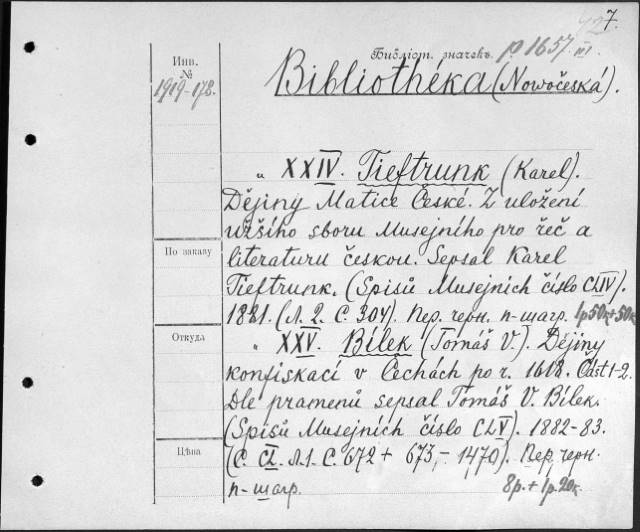 7.
Библіот. значекъ. p. 1657. III.
Инв.
№
1919-178.
Bibliothéka (Nowočeská).
„ XXIV. Tieftrunk (Karel).
Dějiny Matice České. Z uložení
užšího sboru Musejního pro řeč a
literaturu českou. Sepsal Karel
Tieftrunk. (Spisů Musejních číslo CLIV).
1881. (Л. 2. С. 304). Пер. черн. п-шагр. 1р50к+50к
По заказу
Откуда
„ XXV. Bílek (Tomáš V.). Dějiny
konfiskací v Čechách po r. 1618. Část 1-2.
Dle pramenů sepsal Tomáš V. Bílek.
(Spisů Musejních číslo CLV). 1882-83.
Цѣна
(С. CL. Л.1. С. 672 + 673,- 1470). Пер. черн.
п-шагр.
8р. + 1р. 20к.